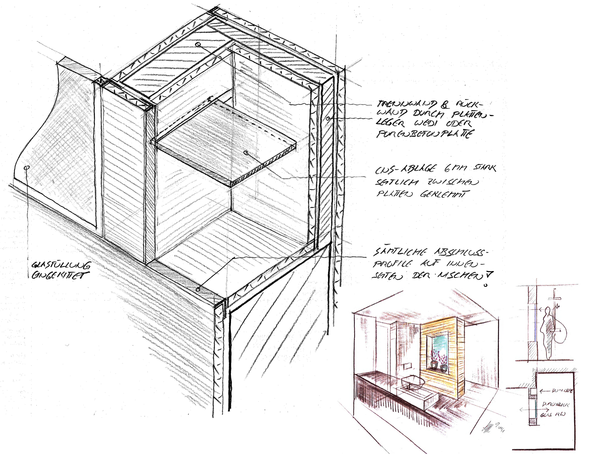 TRENNWAND & RÜCK-
WAND DURCH PLATTEN-
LEGER WEDI ODER
PORENBETONPLATTE
CNS-ABLAGE 6 MM STARK
SEITLICH ZWISCHEN
PLATTEN GEKLEMMT
SÄMTLICHE ABSCHLUSS-
PROFILE AUF INNEN-
SEITEN DER NISCHEN!
GLASFÜLLUNG
EINGEKITTET